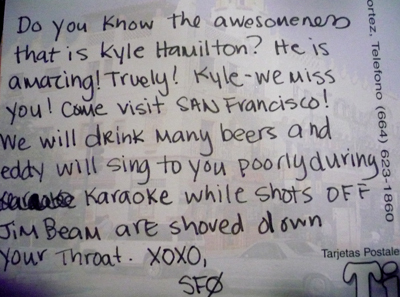 Do you know the awesomeness
that is Kyle Hamilton? He is
amazing! Truely! Kyle-we miss
you! Come visit SAN Francisco!
We will drink many beers and
eddy will sing to you poorly during
Karaoke while shots OFF
Jim Beam are shoved down
your throat. XOXO,
SFØ
ortez, Telefono (664) 623-1860
Tarjetas Postale